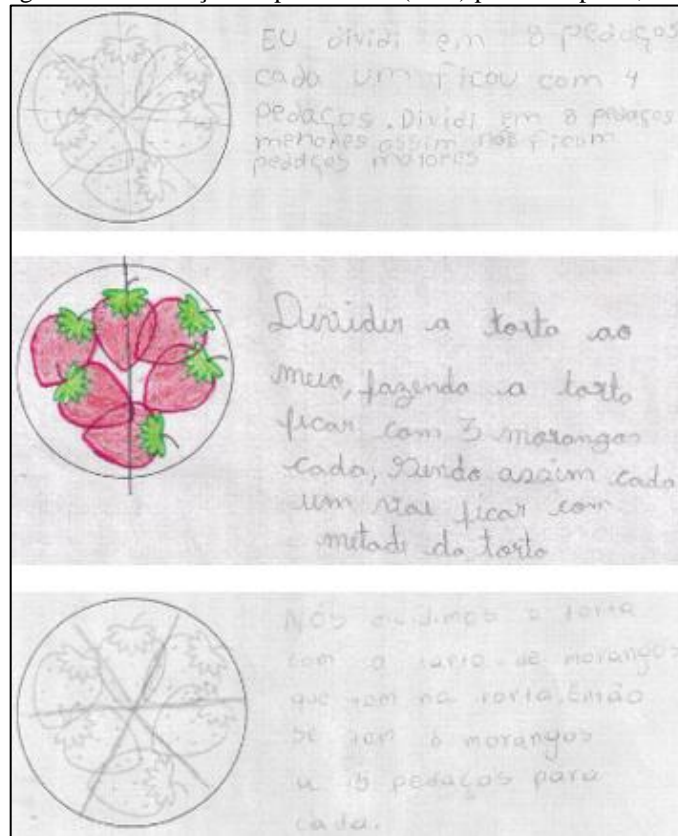 EU dividi em 8 pedaços
cada um ficou com 4
pedaços. Dividi em 8 pedaços
menores assim não ficam
pedaços maiores
Dividir a torta ao
meio, fazendo a torta
ficar com 3 morangos
cada, sendo assim cada
um vai ficar com
metade da torta
NÓS dividimos a torta
com o de morangos
que tem na torta. Então
se tem 6 morangos
pedaços para
cada.